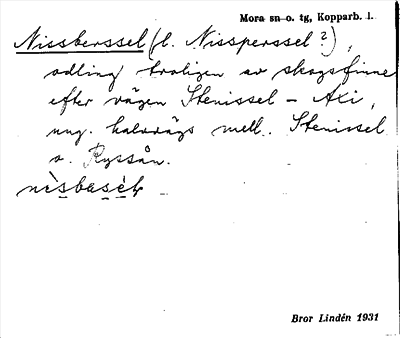 Mora sn o. tg, Kopparb. l.
Nissberssel (l. Nissperssel?),
odling troligen av skogsfinne
efter vägen Stenissel – Axi,
ung. halvvägs mell. Stenissel
o. Ryssån.
nìsbasèł
Bror Lindén 1931